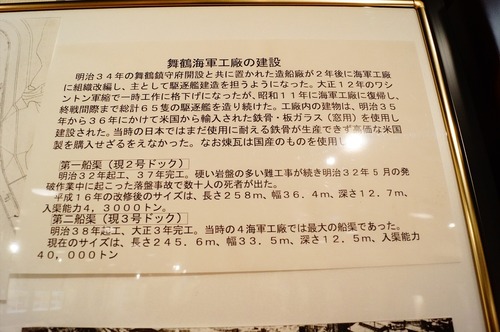 舞鶴海軍工廠の建設
明治３４年の舞鶴鎮守府開設と共に置かれた造船廠が２年後に海軍工廠
に組織改編し、主として駆逐艦建造を担うようになった。大正１２年のワシ
ントン軍縮で一時工作に格下げになったが、昭和１１年に海軍工廠に復帰し、
終戦間際まで総計６５隻の駆逐艦を造り続けた。工廠内の建物は、明治３５
年から３６年にかけて米国から輸入された鉄骨・板ガラス（窓用）を使用し
建設された。当時の日本ではまだ使用に耐える鉄骨が生産できず高価な米国
製を購入せざるをえなかった。なお煉瓦は国産のものを使用し
第一船渠（現２号ドック）
明治３２年起工、３７年完工。硬い岩盤の多い難工事が続き明治３２年５月の発
破作業中に起こった落盤事故で数十人の死者が出た。
平成１６年の改修後のサイズは、長さ２５８ｍ、幅３６．４ｍ、深さ１２．７ｍ、
入渠能力４，３０００トン。
第二船渠（現３号ドック）
明治３８年起工、大正３年完工。当時の４海軍工廠では最大の船渠であった。
現在のサイズは、長さ２４５．６ｍ、幅３３．５ｍ、深さ１２．５ｍ、入渠能力
４０，０００トン